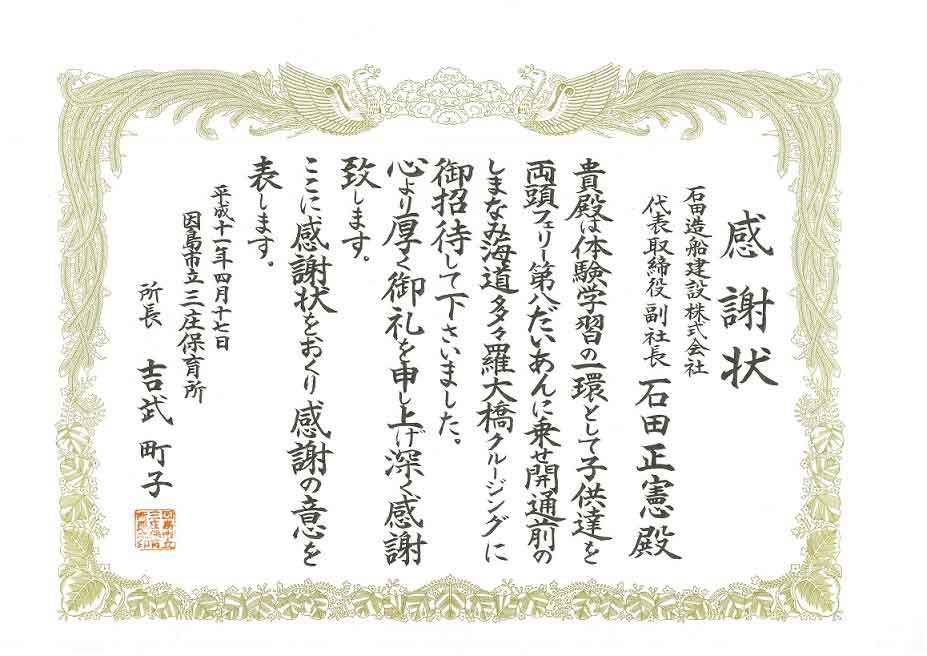 感謝状
石田造船建設株式会社
代表取締役副社長 石田正憲殿
貴殿は体験学習の一環として子供達を
両頭フェリー第八だいあんに乗せ開通前の
しまなみ海道多々羅大橋クルージングに
御招待して下さいました。
心より厚く御礼を申し上げ深く感謝
致します。
ここに感謝状をおくり感謝の意を
表します。
平成十一年四月十七日
因島市立三庄保育所
所長 吉武町子
因島市立
三庄保育
所長之印